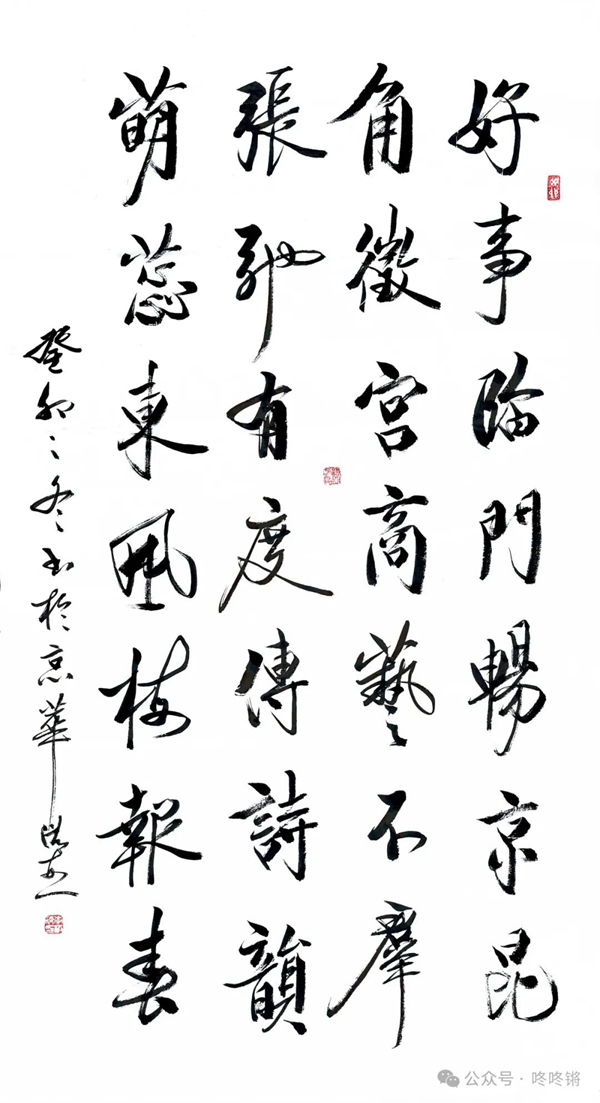 好事臨門暢京昆
角徵宮商藝不羣
張弛有度傳詩韻
萌蕊東風梅報春
癸卯之冬书於京華
公众号·咚咚锵